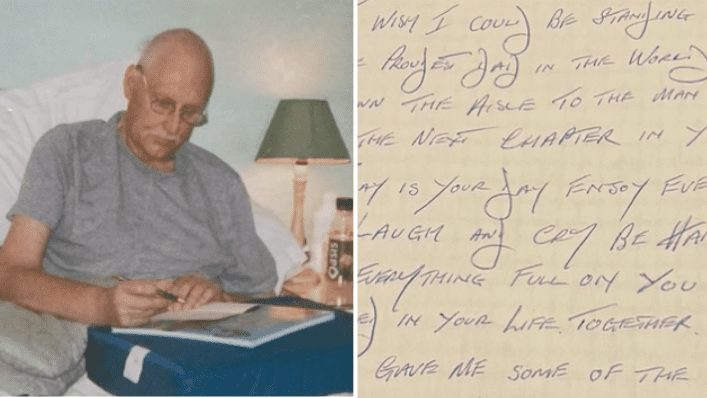 OASIS
WISH I COULD BE STANDING
PROUDEST DAY IN THE WORLD
WN THE AISLE TO THE MAN
THE NEXT CHAPTER IN Y
AY IS YOUR DAY ENJOY EVE
LAUGH AND CRY BE HA
EVERYTHING FULL ON YOU
IN YOUR LIFE TOGETHER.
GAVE ME SOME OF THE